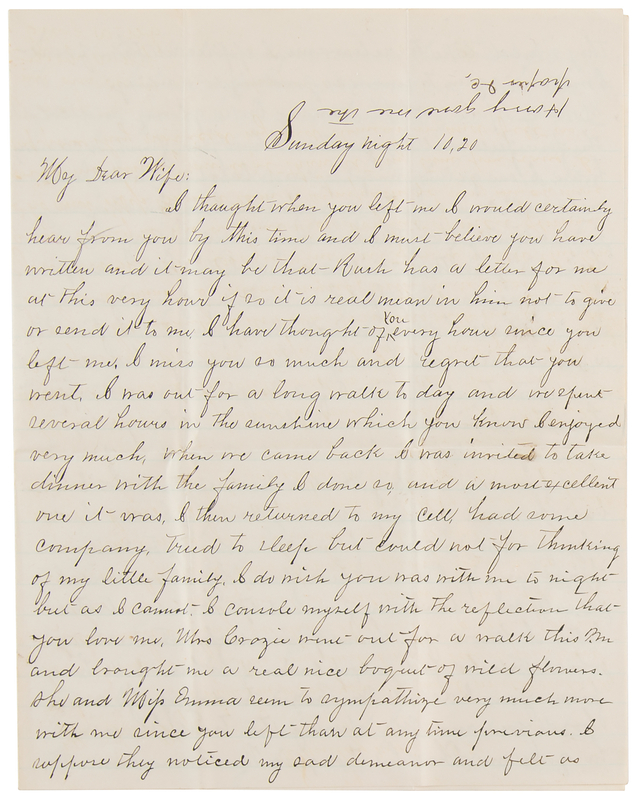 Sunday night 10,20
My Dear Wife:
I thought when you left me I would certainly
hear from you by this time and I must believe you have
written and it may be that Rush has a letter for me
at this very hour if so it is real mean in him not to give
or send it to me. I have thought of you every hour since you
left me. I miss you so much and regret that you
went. I was out for a long walk to day and we spent
several hours in the sunshine which you know I enjoyed
very much, when we came back I was invited to take
dinner with the family I done so, and a most excellent
one it was, I then returned to my cell, had some
company, tried to sleep but could not for thinking
of my little family. I do wish you was with me to night
but as I cannot I console myself with the reflection that
you love me. Mrs Crazie went out for a walk this Pm
and brought me a real nice boquet of wild flowers.
She and Miss Emma seem to sympathize very much more
with me since you left than at any time previous. I
suppose they noticed my sad demeanor and felt as